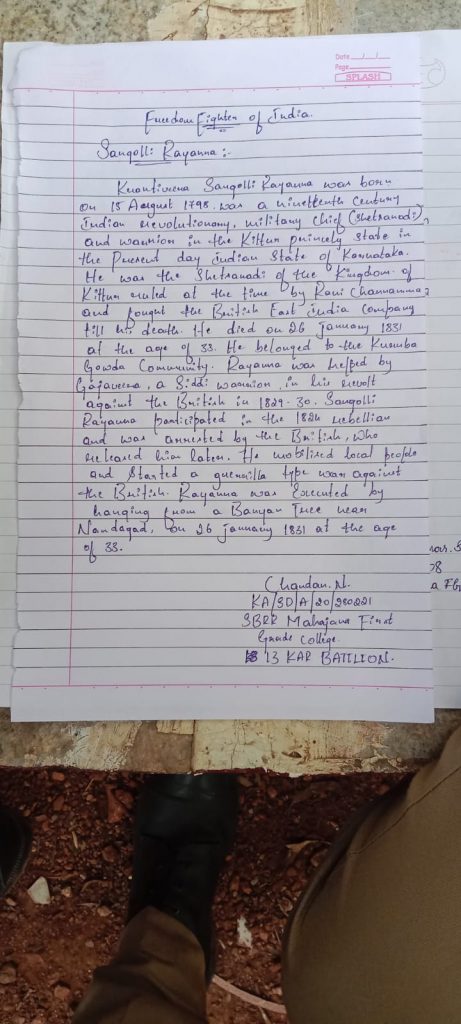 Date / /
Page
SPLASH
Freedom Fighter of India.
Sangolli Rayanna :-
Krantiveera Sangolli Rayanna was born
on 15 August 1798. was a nineteenth Century
Indian revolutionary, military chief (Shetsanadi)
and warrior in the Kittur princely state in
the Present day indian State of Karnataka.
He was the Shetsanadi of the Kingdom of
Kittur ruled at the time by Rani Channamma,
and fought the British East india company
till his death. He died on 26 january 1831
at the age of 33. He belonged to the Kuruba
Gowda Community. Rayanna was helped by
Gajaveera, a Siddi warrior, in his revolt
against the British in 1829-30. Sangolli
Rayanna participated in the 1824 rebellian
and was arrested by the British, who
released him later. He mobilised local people
and Started a guerrilla type war against
the British. Rayanna was Executed by
hanging from a Banyan Tree near
Nandagad, on 26 january 1831 at the age
of 33.
Chandan. N.
KA/SD/A/20/280221
SBRR Mahajana First
Grade College.
13 KAR BATTLION.